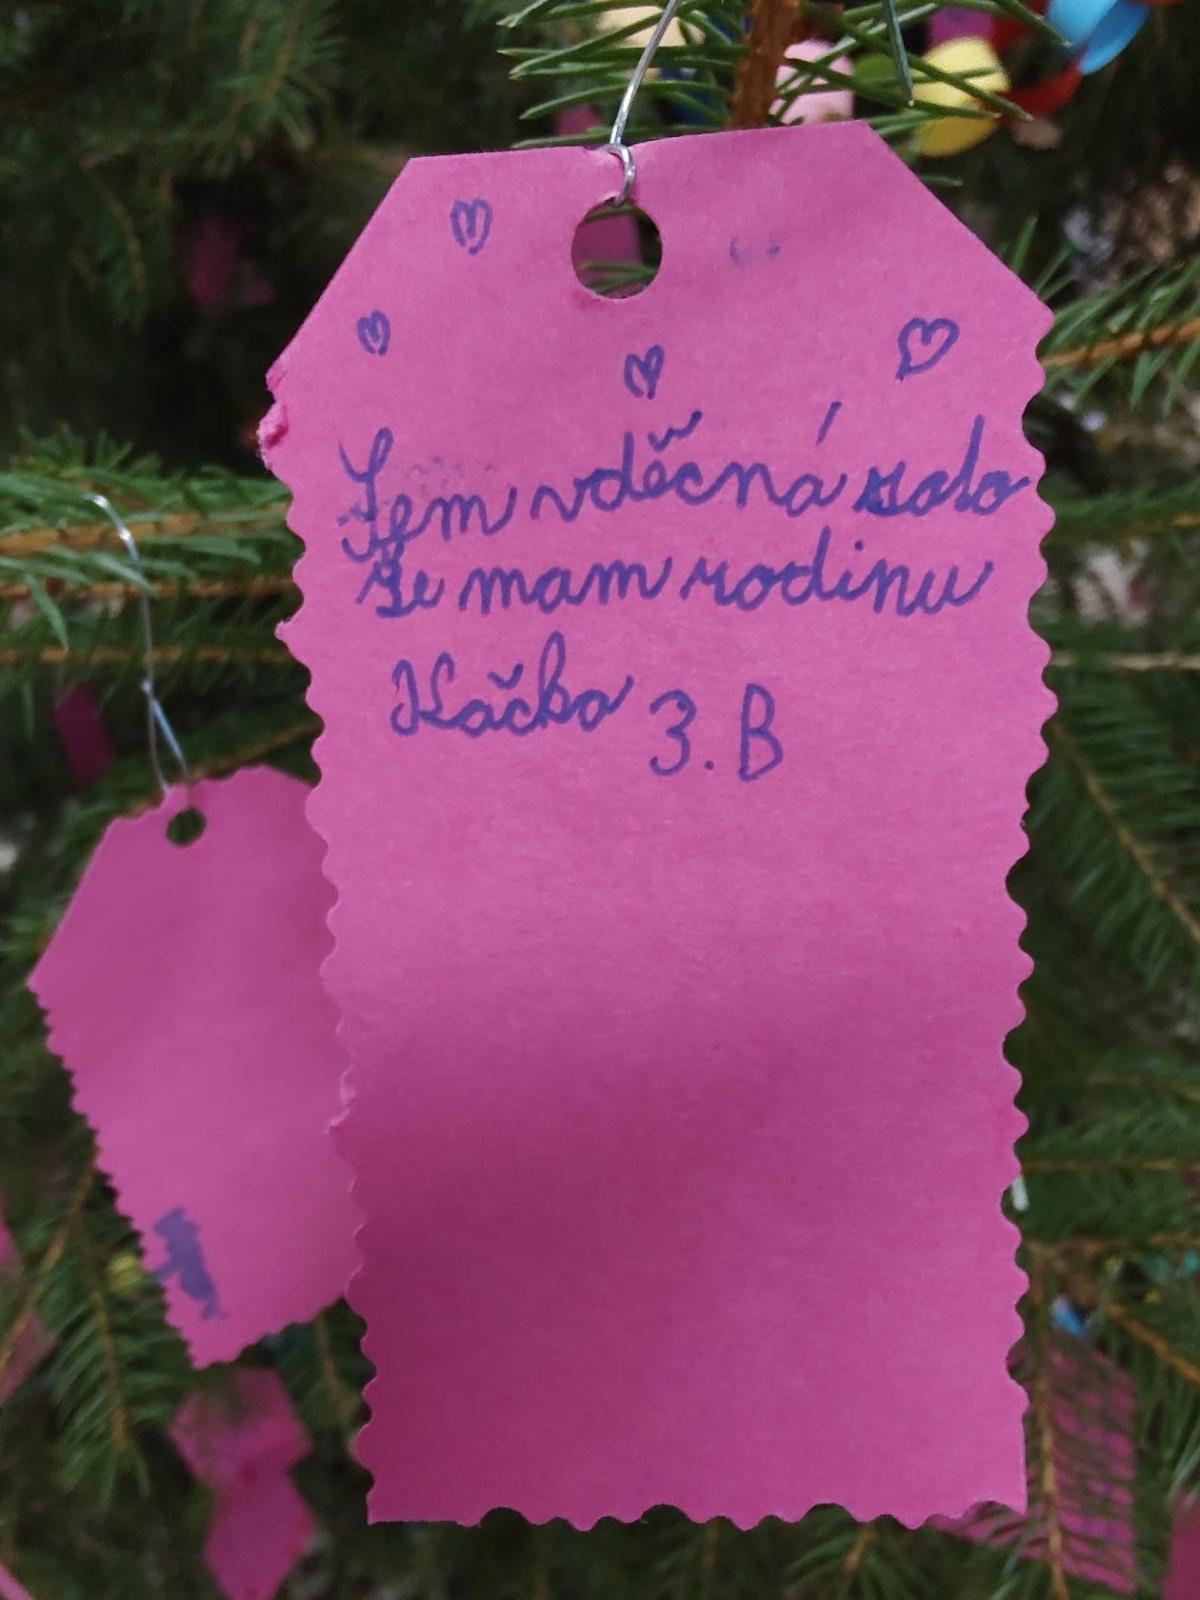 Jem vděcná zato
Že mam rodinu
Kačka 3. B